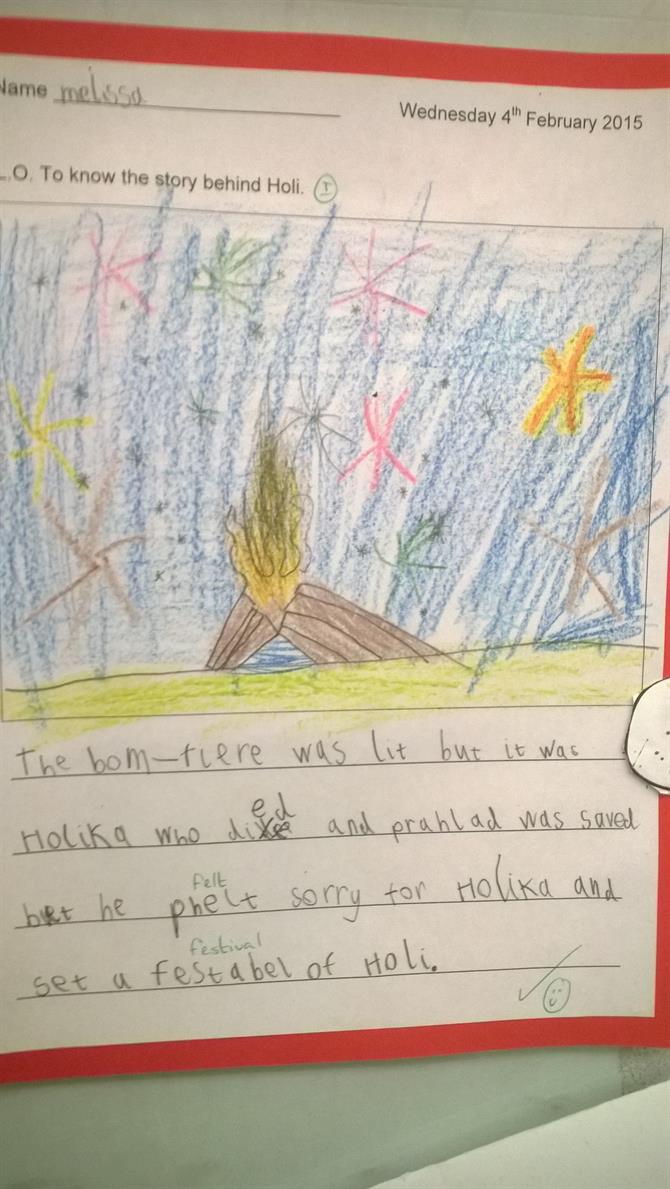 Name melissa
Wednesday 4th February 2015
L.O. To know the story behind Holi. I
The bom-fiere was lit but it was
ed
Holika who died and prahlad was saved
felt
but he phelt sorry for Holika and
festival
set a festabel of Holi.